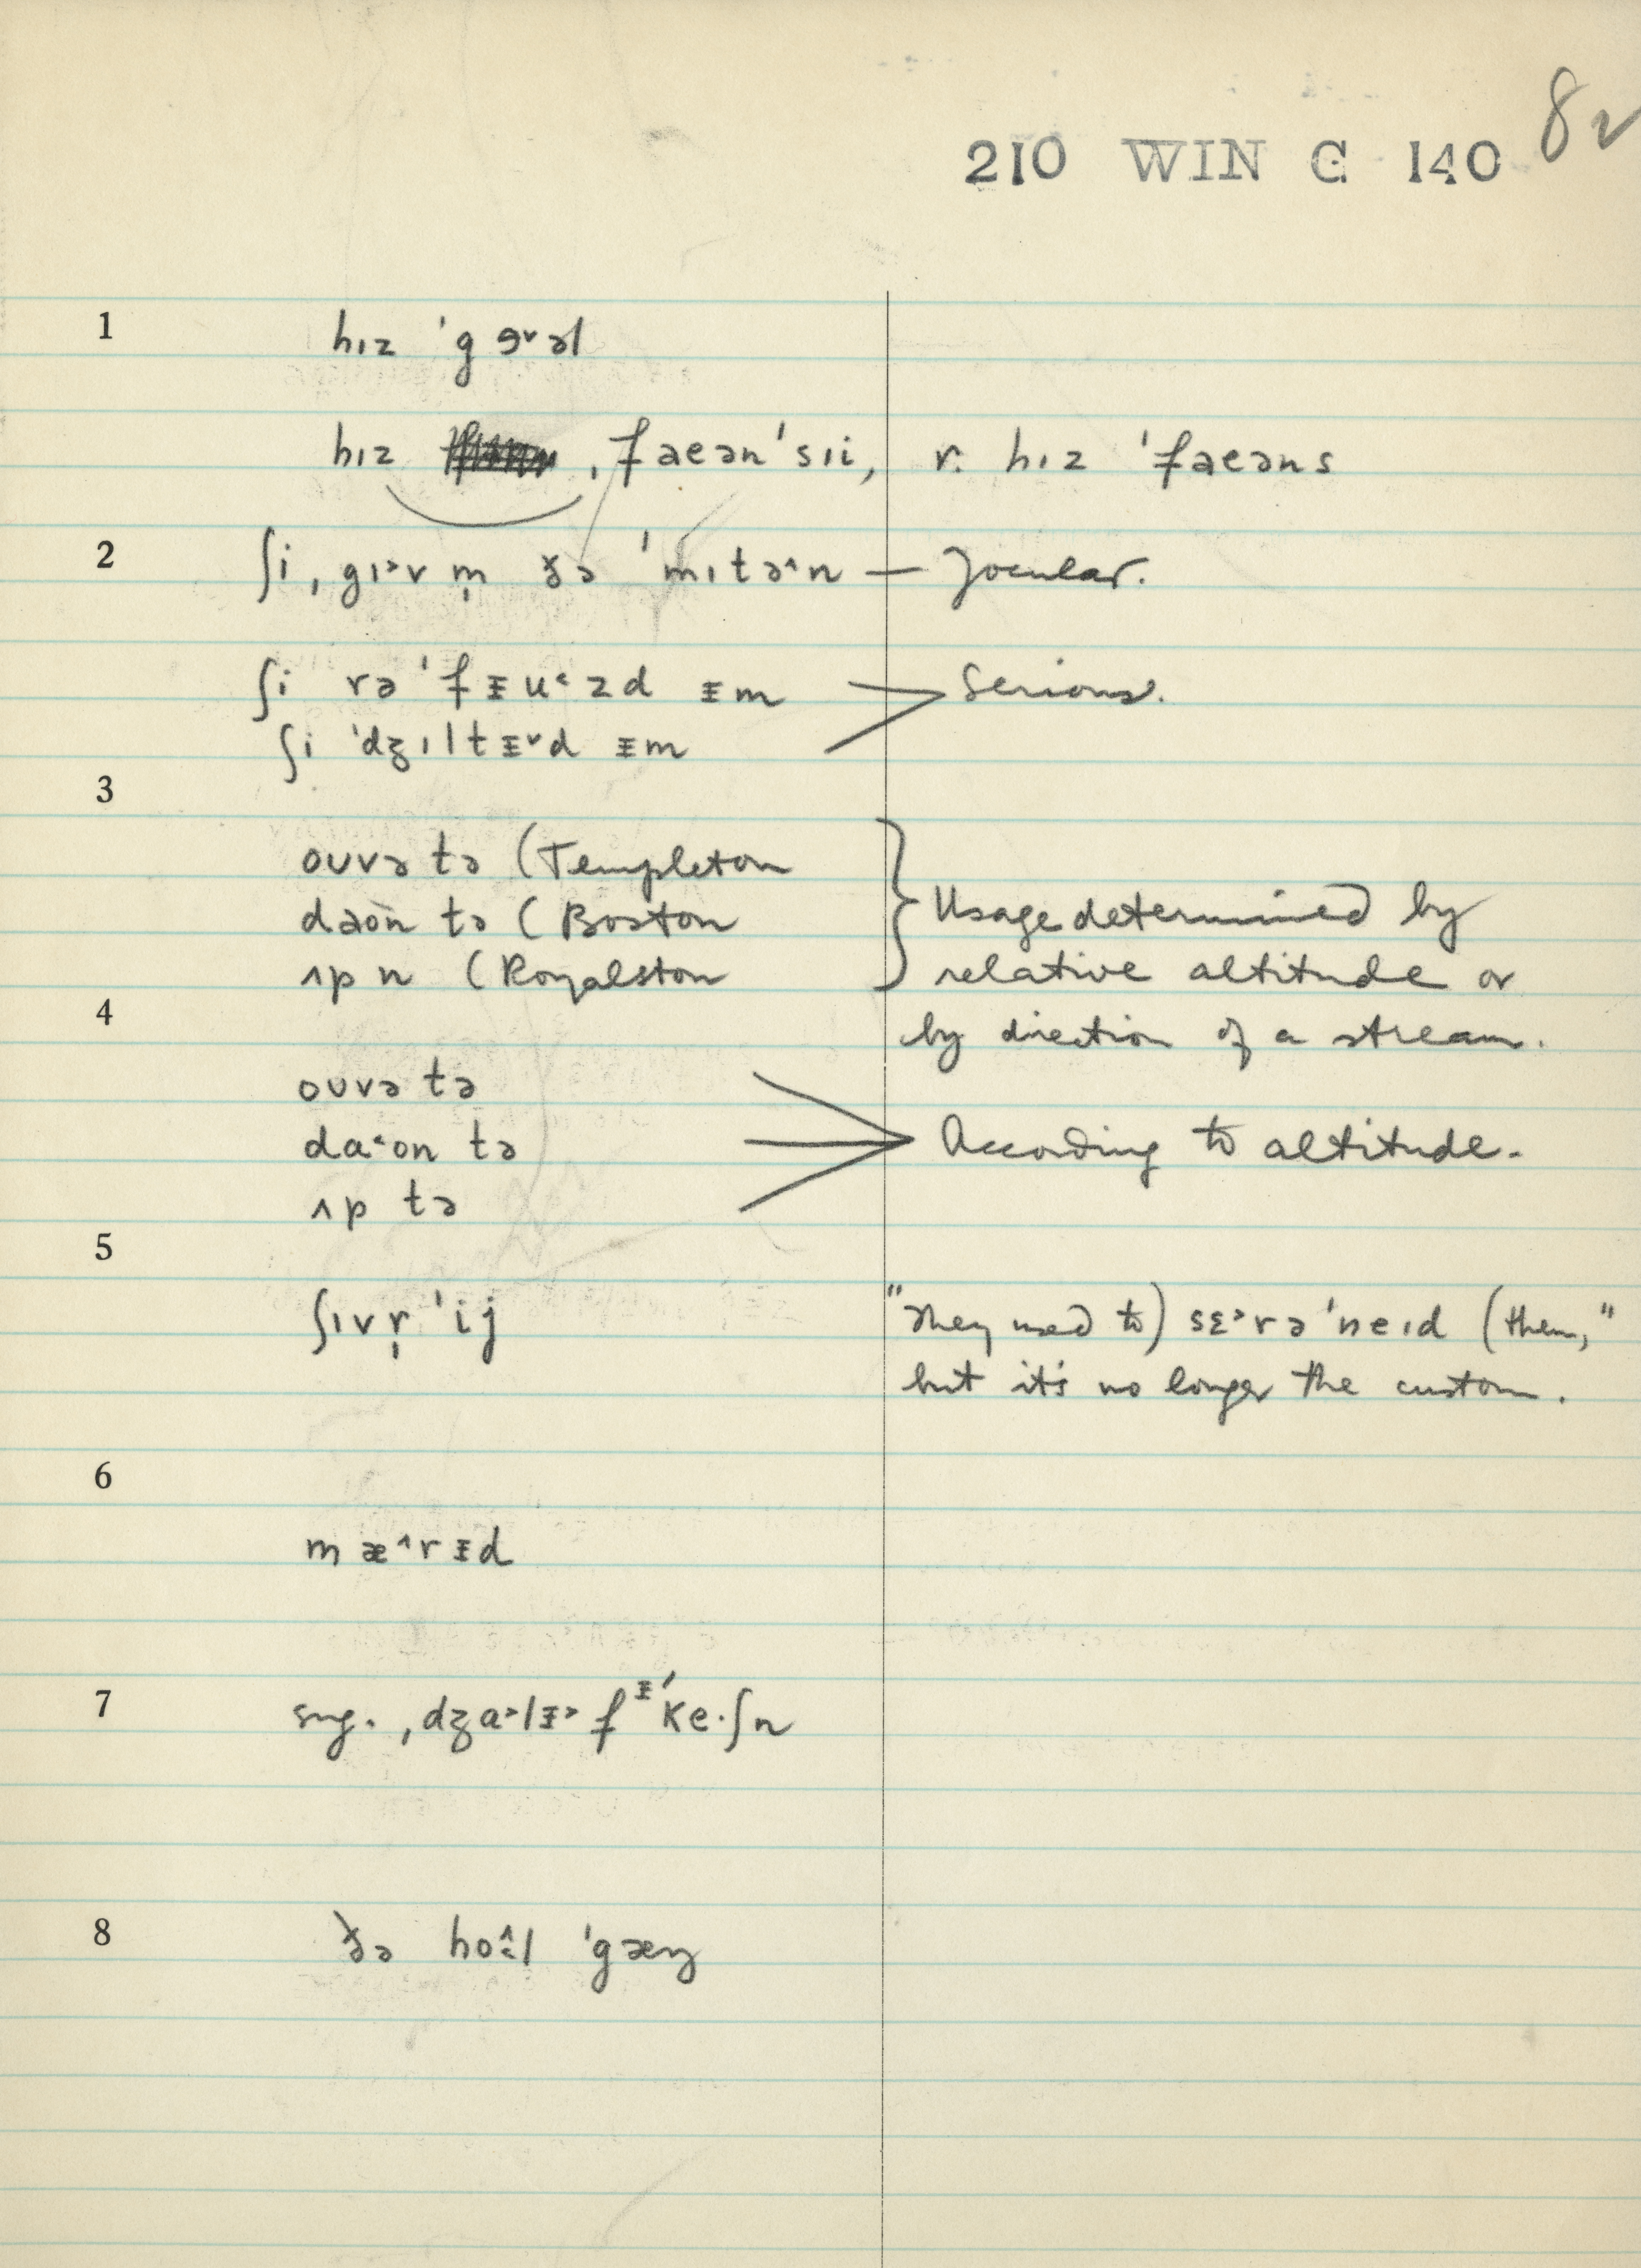 210 WIN C 140 82
1 hɪz ˈgɚ˅əl
hɪz ˌfaeənˈsıi, r. hɪz ˈfaeəns
2 ʃi ˌgɪ˃v m̩ ðə ˈmɪtə˄n — Jocular.
ʃi rəˈfᵻu˂zd ᵻm > Serious.
ʃi ˈdʒɪltᵻ˅d ᵻm
3
ouvə tə (Templeton
daon tə (Boston } Usage determined by
ʌp n (Royalston relative altitude or
4 by direction of a stream.
ouvə tə
da˂on tə > According to altitude.
ʌp tə
5
ʃɪvr̩ˈij "They used to) sɛ˃rəˈneɪd (them,"
but it's no longer the custom.
6
mæ˄rᵻd
7 sug. ˌdʒa˃lᵻ˃fᵻˈke·ʃn
8 ðə ho̭l ˈgæŋ